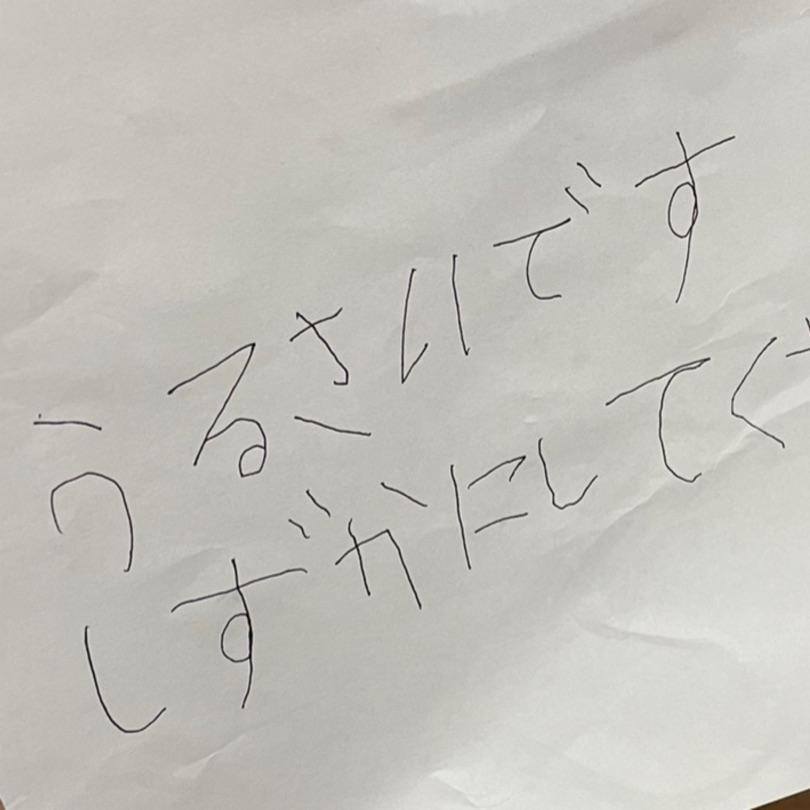 うるさいです
しずかにしてく